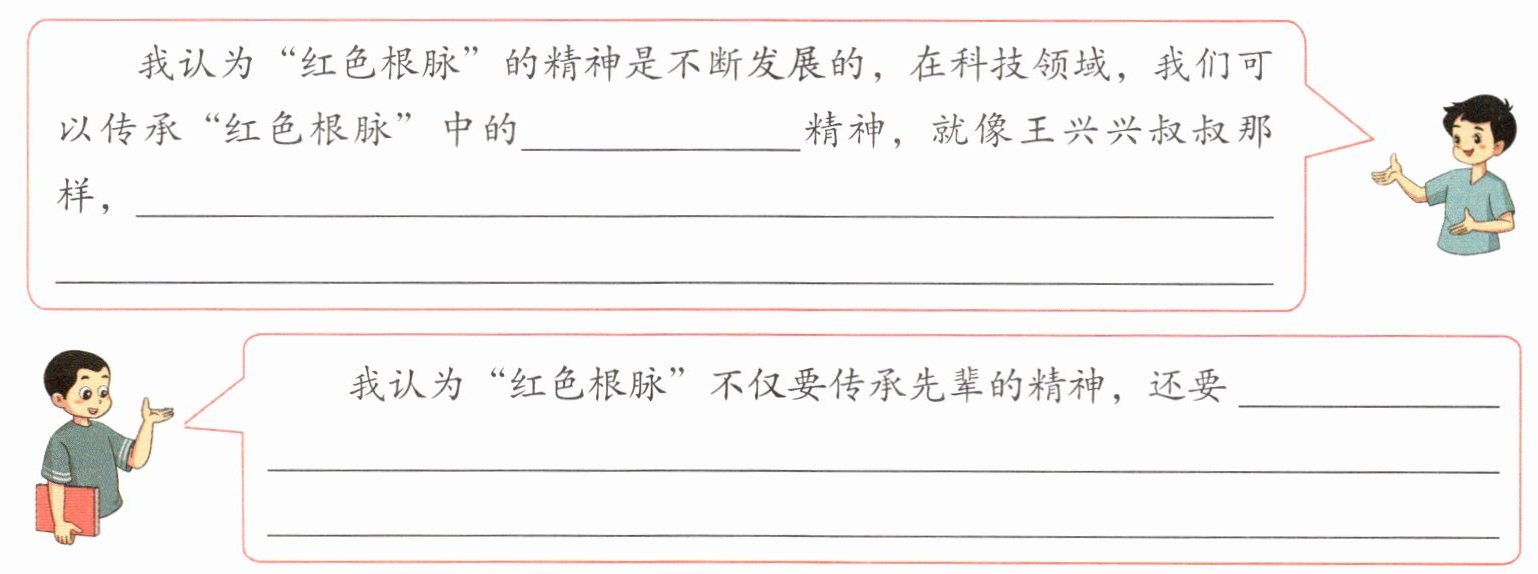 我认为“红色根脉”的精神是不断发展的，在科技领域，我们可
以传承“红色根脉”中的______精神，就像王兴兴叔叔那
样，______
我认为“红色根脉”不仅要传承先辈的精神，还要______